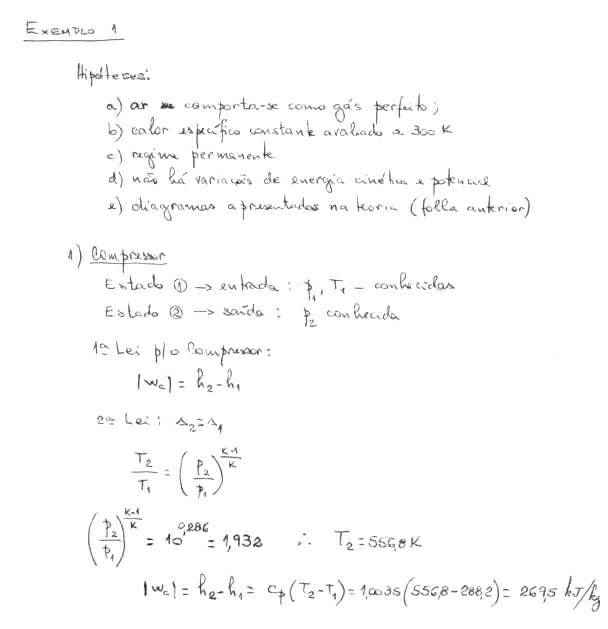 EXEMPLO 1
Hipóteses:
a) ar comporta-se como gás perfeito;
b) calor específico constante avaliado a 300 K
c) regime permanente
d) não há variação de energia cinética e potencial
e) diagramas apresentados na teoria (folha anterior)
1) Compressor
Estado ① → entrada : p₁, T₁ - conhecidas
Estado ② → saída : p₂ conhecida
1ª Lei p/o Compressor:
|wc| = h₂-h₁
2ª Lei : s₂=s₁
T₂/T₁ = (p₂/p₁)^((k-1)/k)
(p₂/p₁)^((k-1)/k) = 10^0,286 = 1,932 ∴ T₂=556,8 K
|wc| = h₂-h₁ = cp(T₂-T₁) = 1,0035(556,8-288,2) = 269,5 kJ/kg